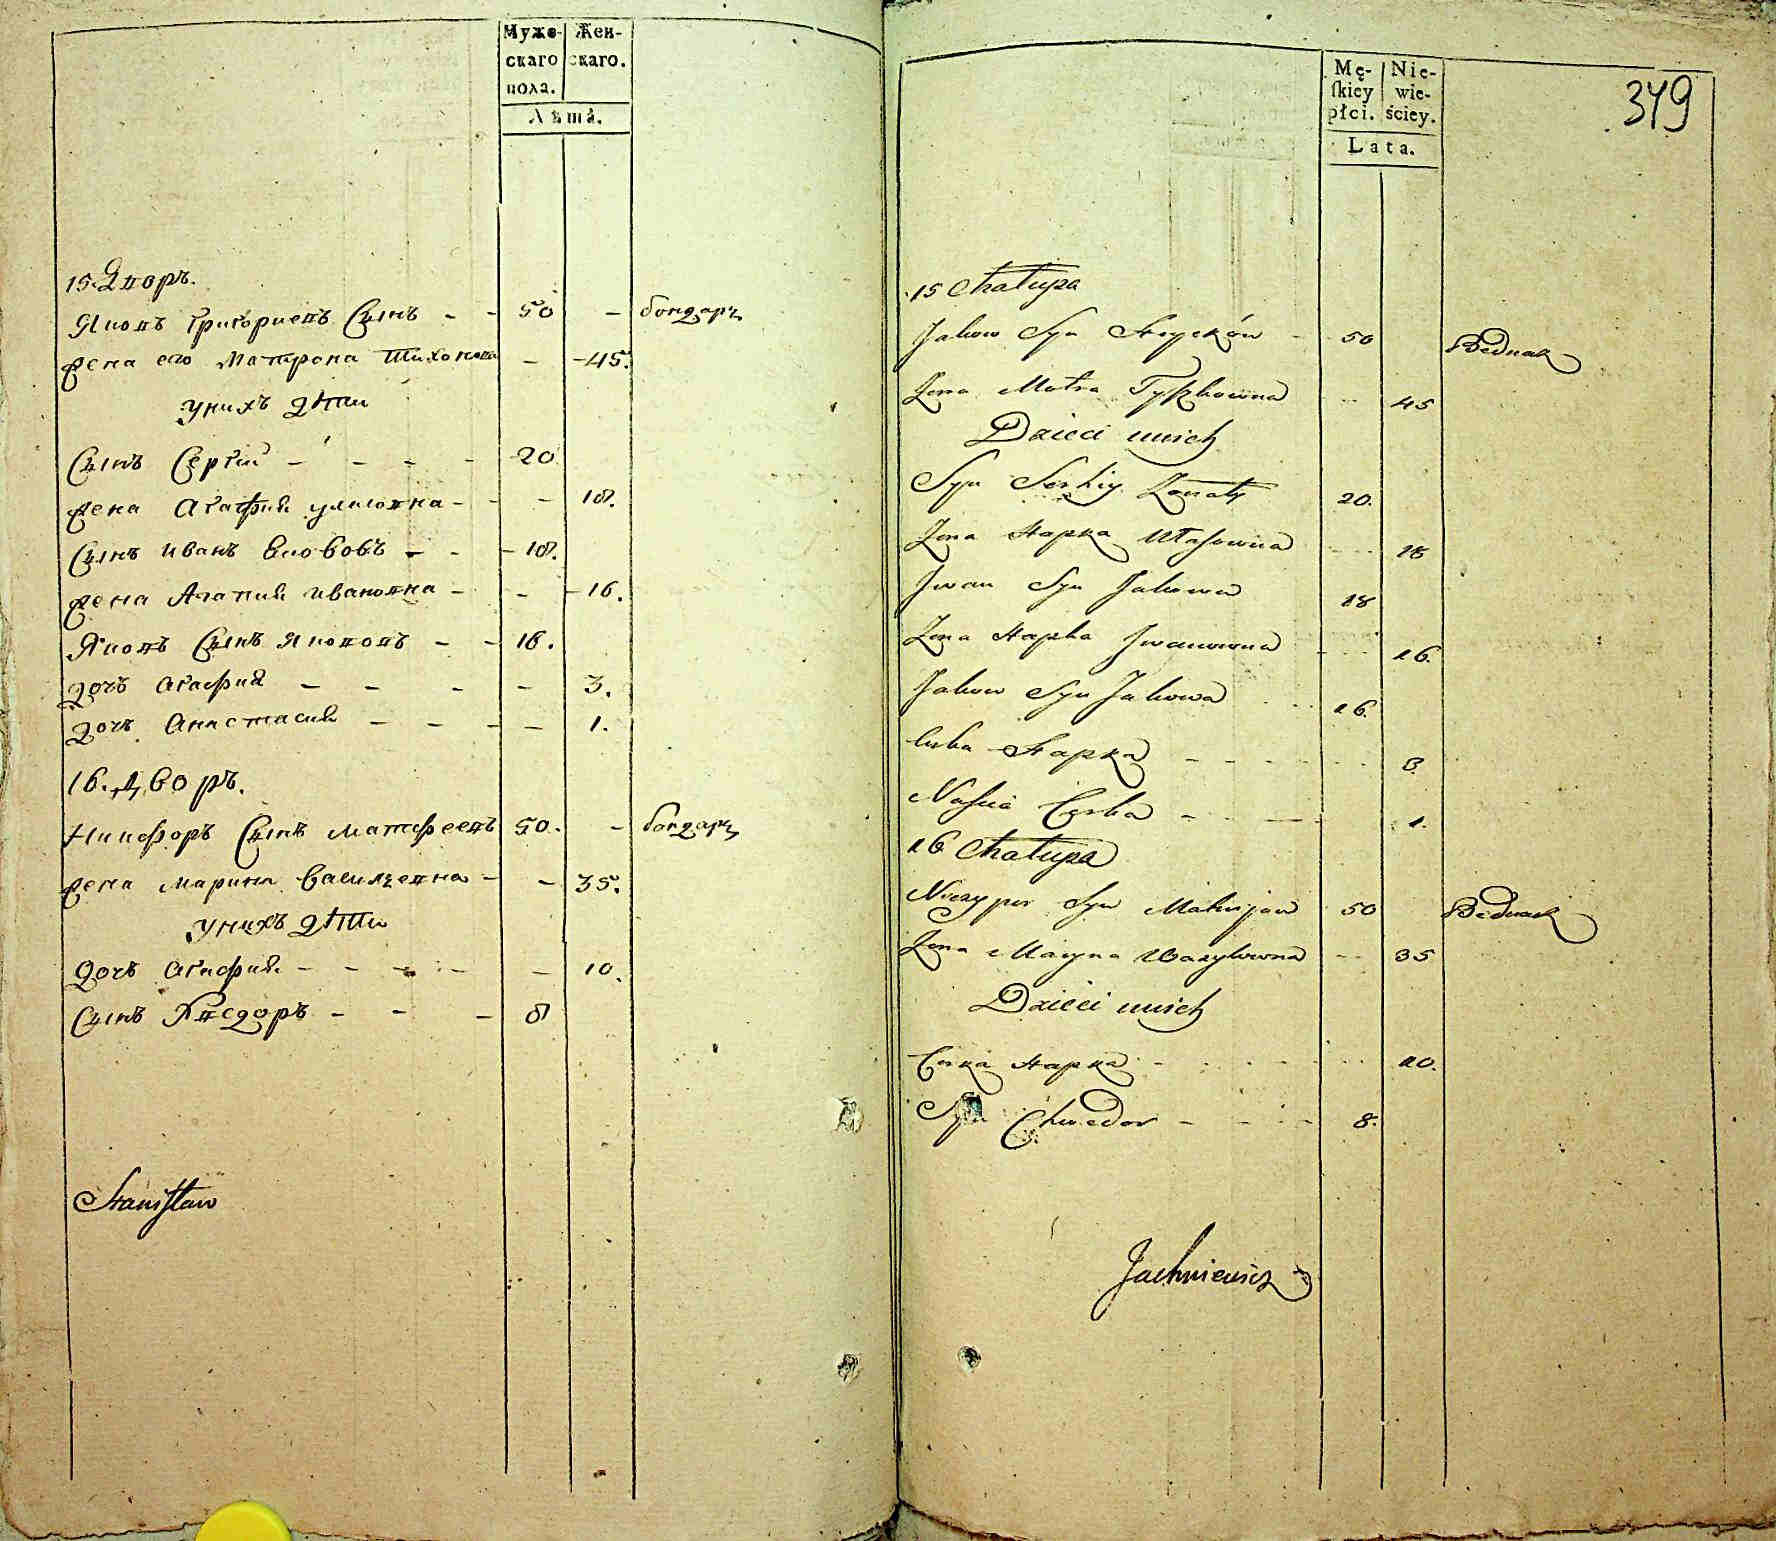 Муже- Жен-
скаго скаго.
пола.
Лѣта.
15. Дворъ.
Яковъ Григориевъ Сынъ - - 50 - бондаръ
Жена его Матрона Тихонова - - 45.
Унихъ дѣти
Сынъ Сергий - - - - 20
Жена Агафия - - - 18.
Сынъ иванъ - - - 18.
Жена Агапия ивановна - - - 16.
Яковъ Сынъ Якововъ - - 16.
дочъ Агафия - - - - 3.
дочъ Анастасия - - - - 1.
16. дворъ.
Никифоръ Сынъ Матфеевъ 50. - бондаръ
Жена Марина Василиевна - - 35.
Унихъ дѣти
дочъ Агафия - - - - - 10.
Сынъ Хведоръ - - - 8
Stanisław
Mę- Nie-
skiey wie-
płci. ściey.
Lata.
379
15 Chałupa
Jakow Syn Hryców - 50 Bednarz
Zona Motra - - 45
Dzieci unich
Syn Serhiy Zonaty 20.
Zona Hapka Ułasowna - - - 18
Jwan Syn Jakowa 18
Zona Hapka Jwanowna - - - 16.
Jakow Syn Jakowa - - - 16.
Curka Hapka - - - - - - - 3.
Nascia Curka - - - 1.
16 Chałupa
Niczypor Syn Matwijow 50 Bednarz
Zona Maryna Wasylowna - - 35
Dzieci unich
Curka Hapka - - - - - - 10.
Syn Chwedor - - - - 8.
Jachniewicz